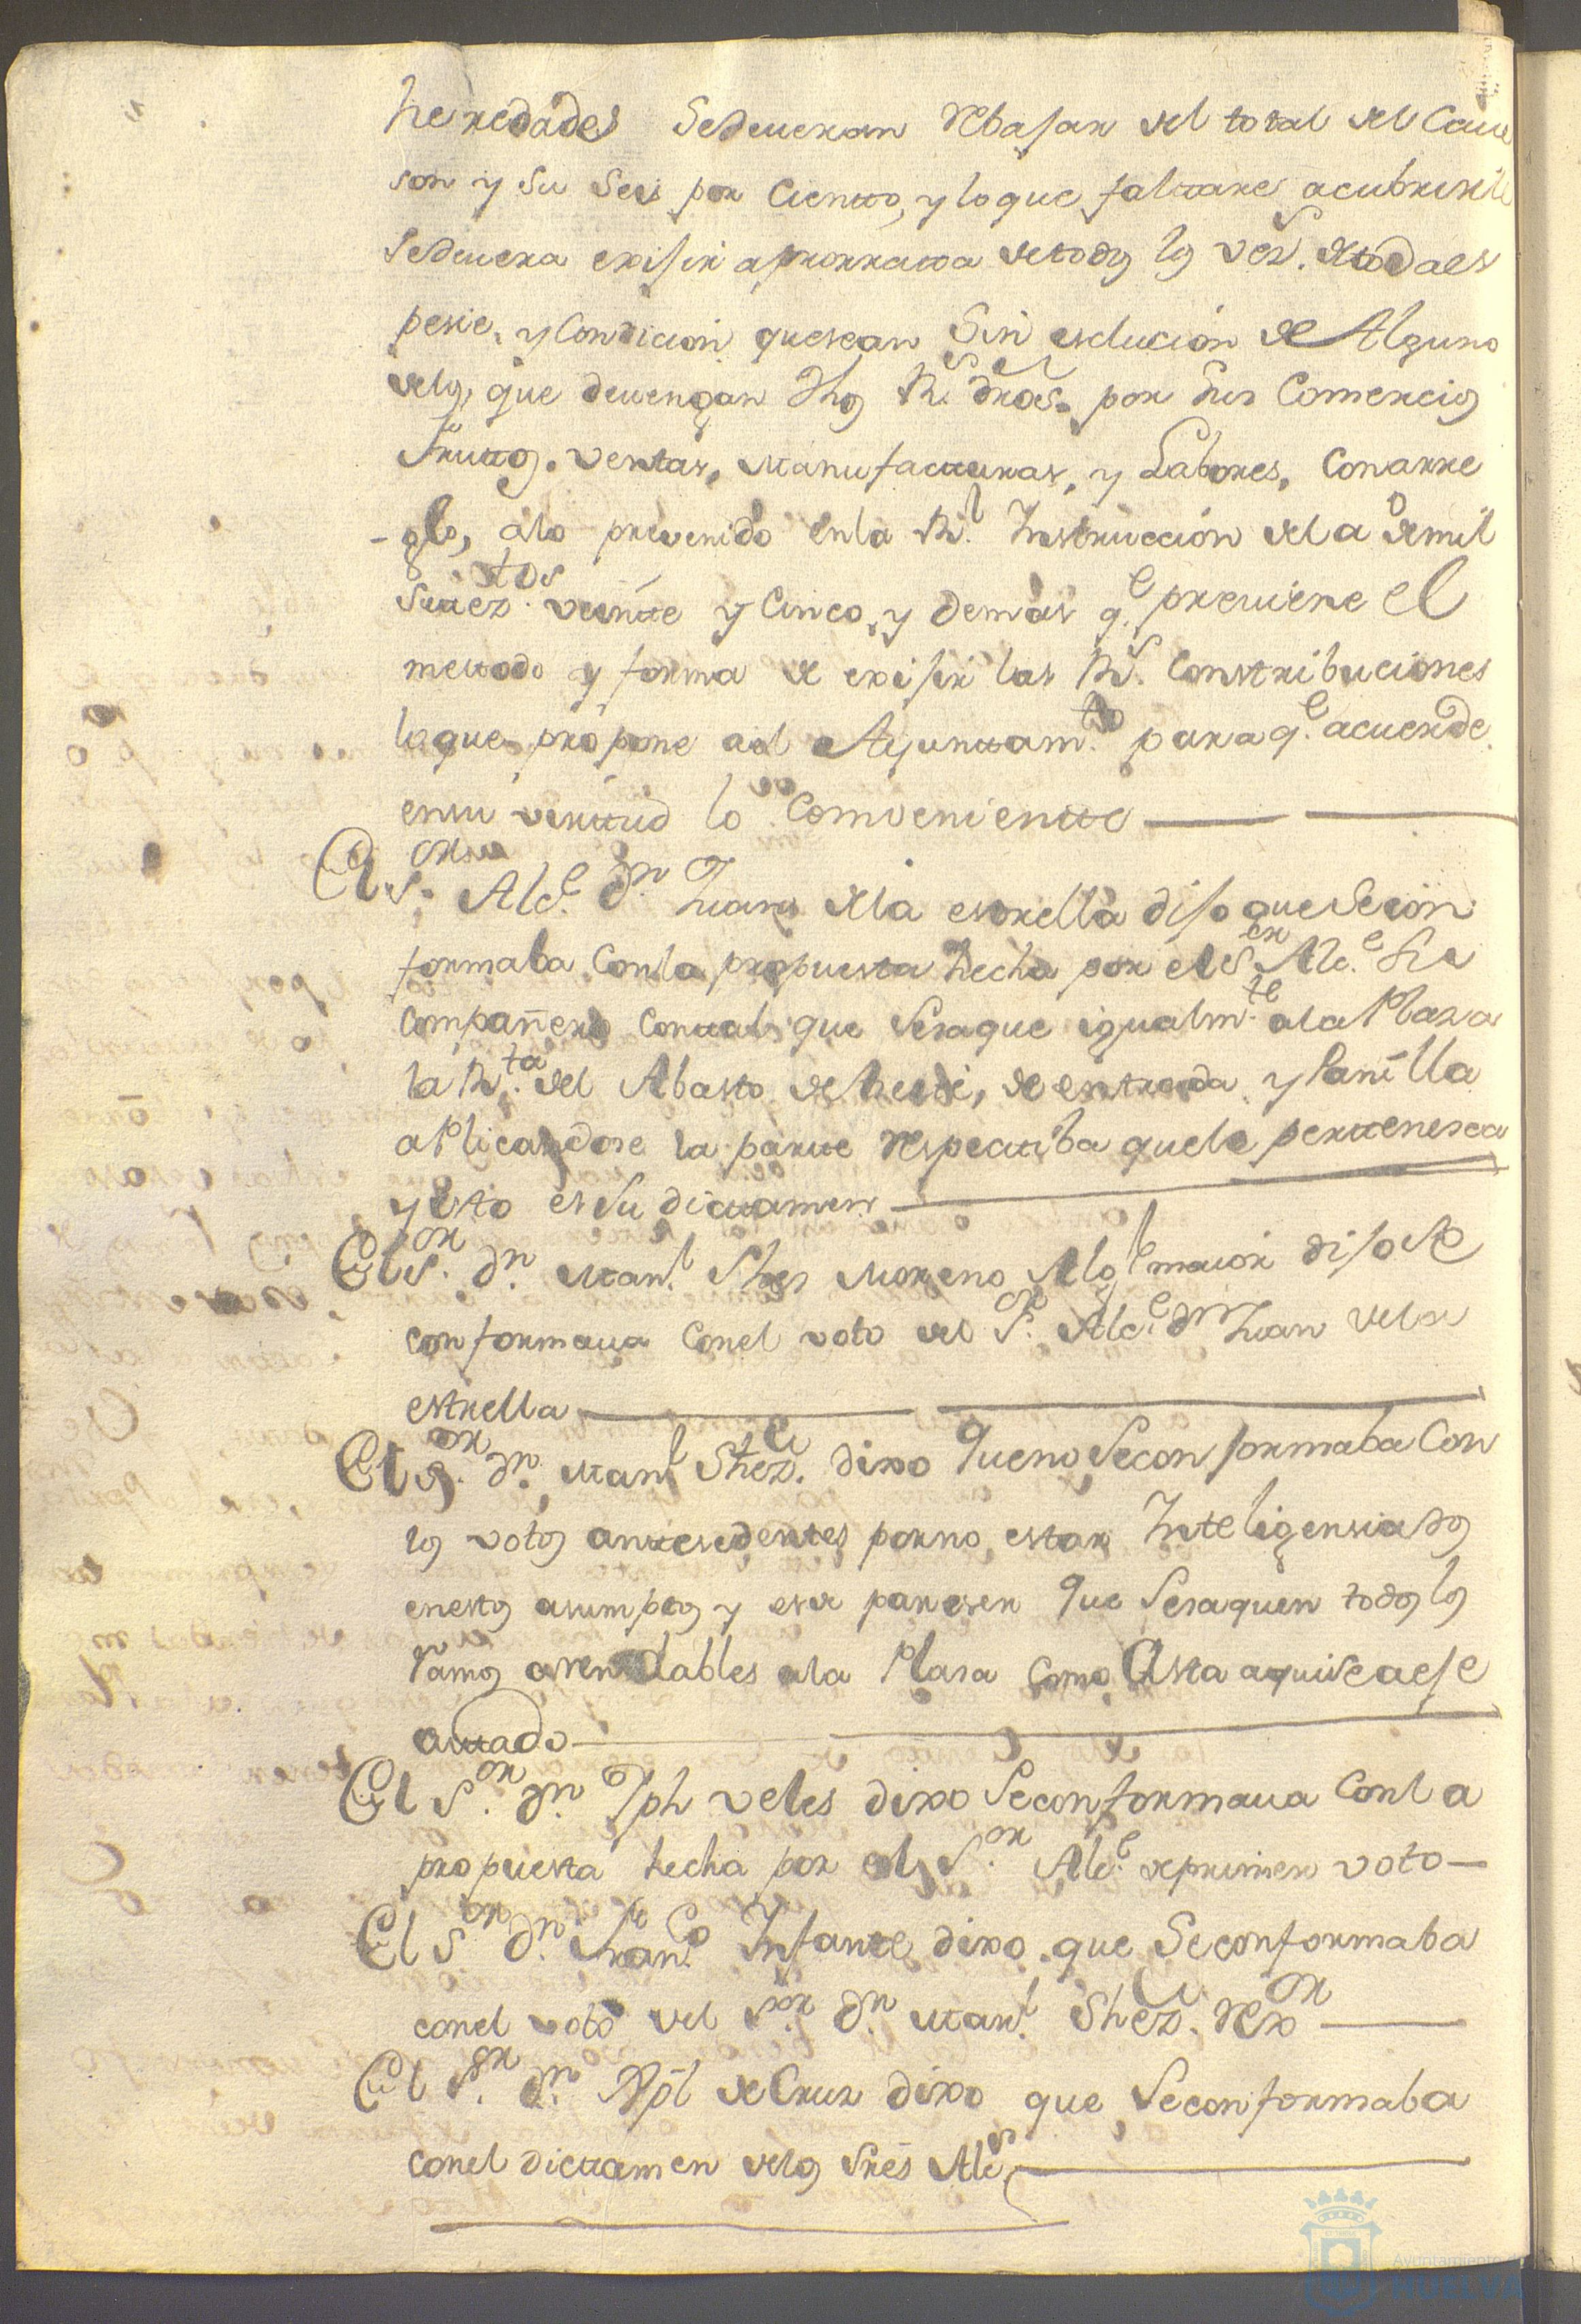 heredades se deueran rebajar del total del Caue
son y su seis por Ciento, y lo que faltare a cubrirle
se deuera exijir a prorrata de todos los vezs. de toda es
pesie, y Condicion que sean sin esclucion de Alguno
delos, que deuengan dhos Rs. dros. por sus Comercios
frutos. ventas, manufacturas, y Labores, con arre
-glo, alo preuenido enla Rl. Instruccion del año de mil
seteztos. veinte y Cinco, y demas qe. preuiene el
metodo y forma de exijir las Rs. Contribuciones
lo que propone al Ayuntamto. para qe. acuerde
ensu virtud lo Conveniente
El Sor. Alce. dn. Juan dela estrella dijo que se con
formaba con la propuesta hecha por el Sor. Alce. su
compañero con tal que se saque igualmte. ala Plaza
la Rta. del Abasto de , de entrada y Panilla
aplicandose la parte respectiba que le pertenesca
y esto es su dictamen
El Sor. dn. Manl. Shes Moreno Algl. maior dijo se
conformaua con el voto del Sr. Alce. dn Juan dela
estrella
El Sor. dn. Manl. Shez. dixo que no se conformaba con
los votos antesedentes por no estar Inteligensiados
en estos asumptos y es de pareser que se saquen todos los
ramos arendables ala Plasa como asta aqui se a efe
ctuado
El Sor. dn. Jph veles dixo se conformaua con la
propuesta hecha por el Sor. Alce. de primer voto
El Sor. dn. Franco. Infante dixo que se conformaba
con el voto del Sor. dn Manl. Shez. Rexor
El Sor. dn. de Cruz dixo que se conformaba
con el dictamen delos Sres Alces
Ayuntamiento
HUELVA